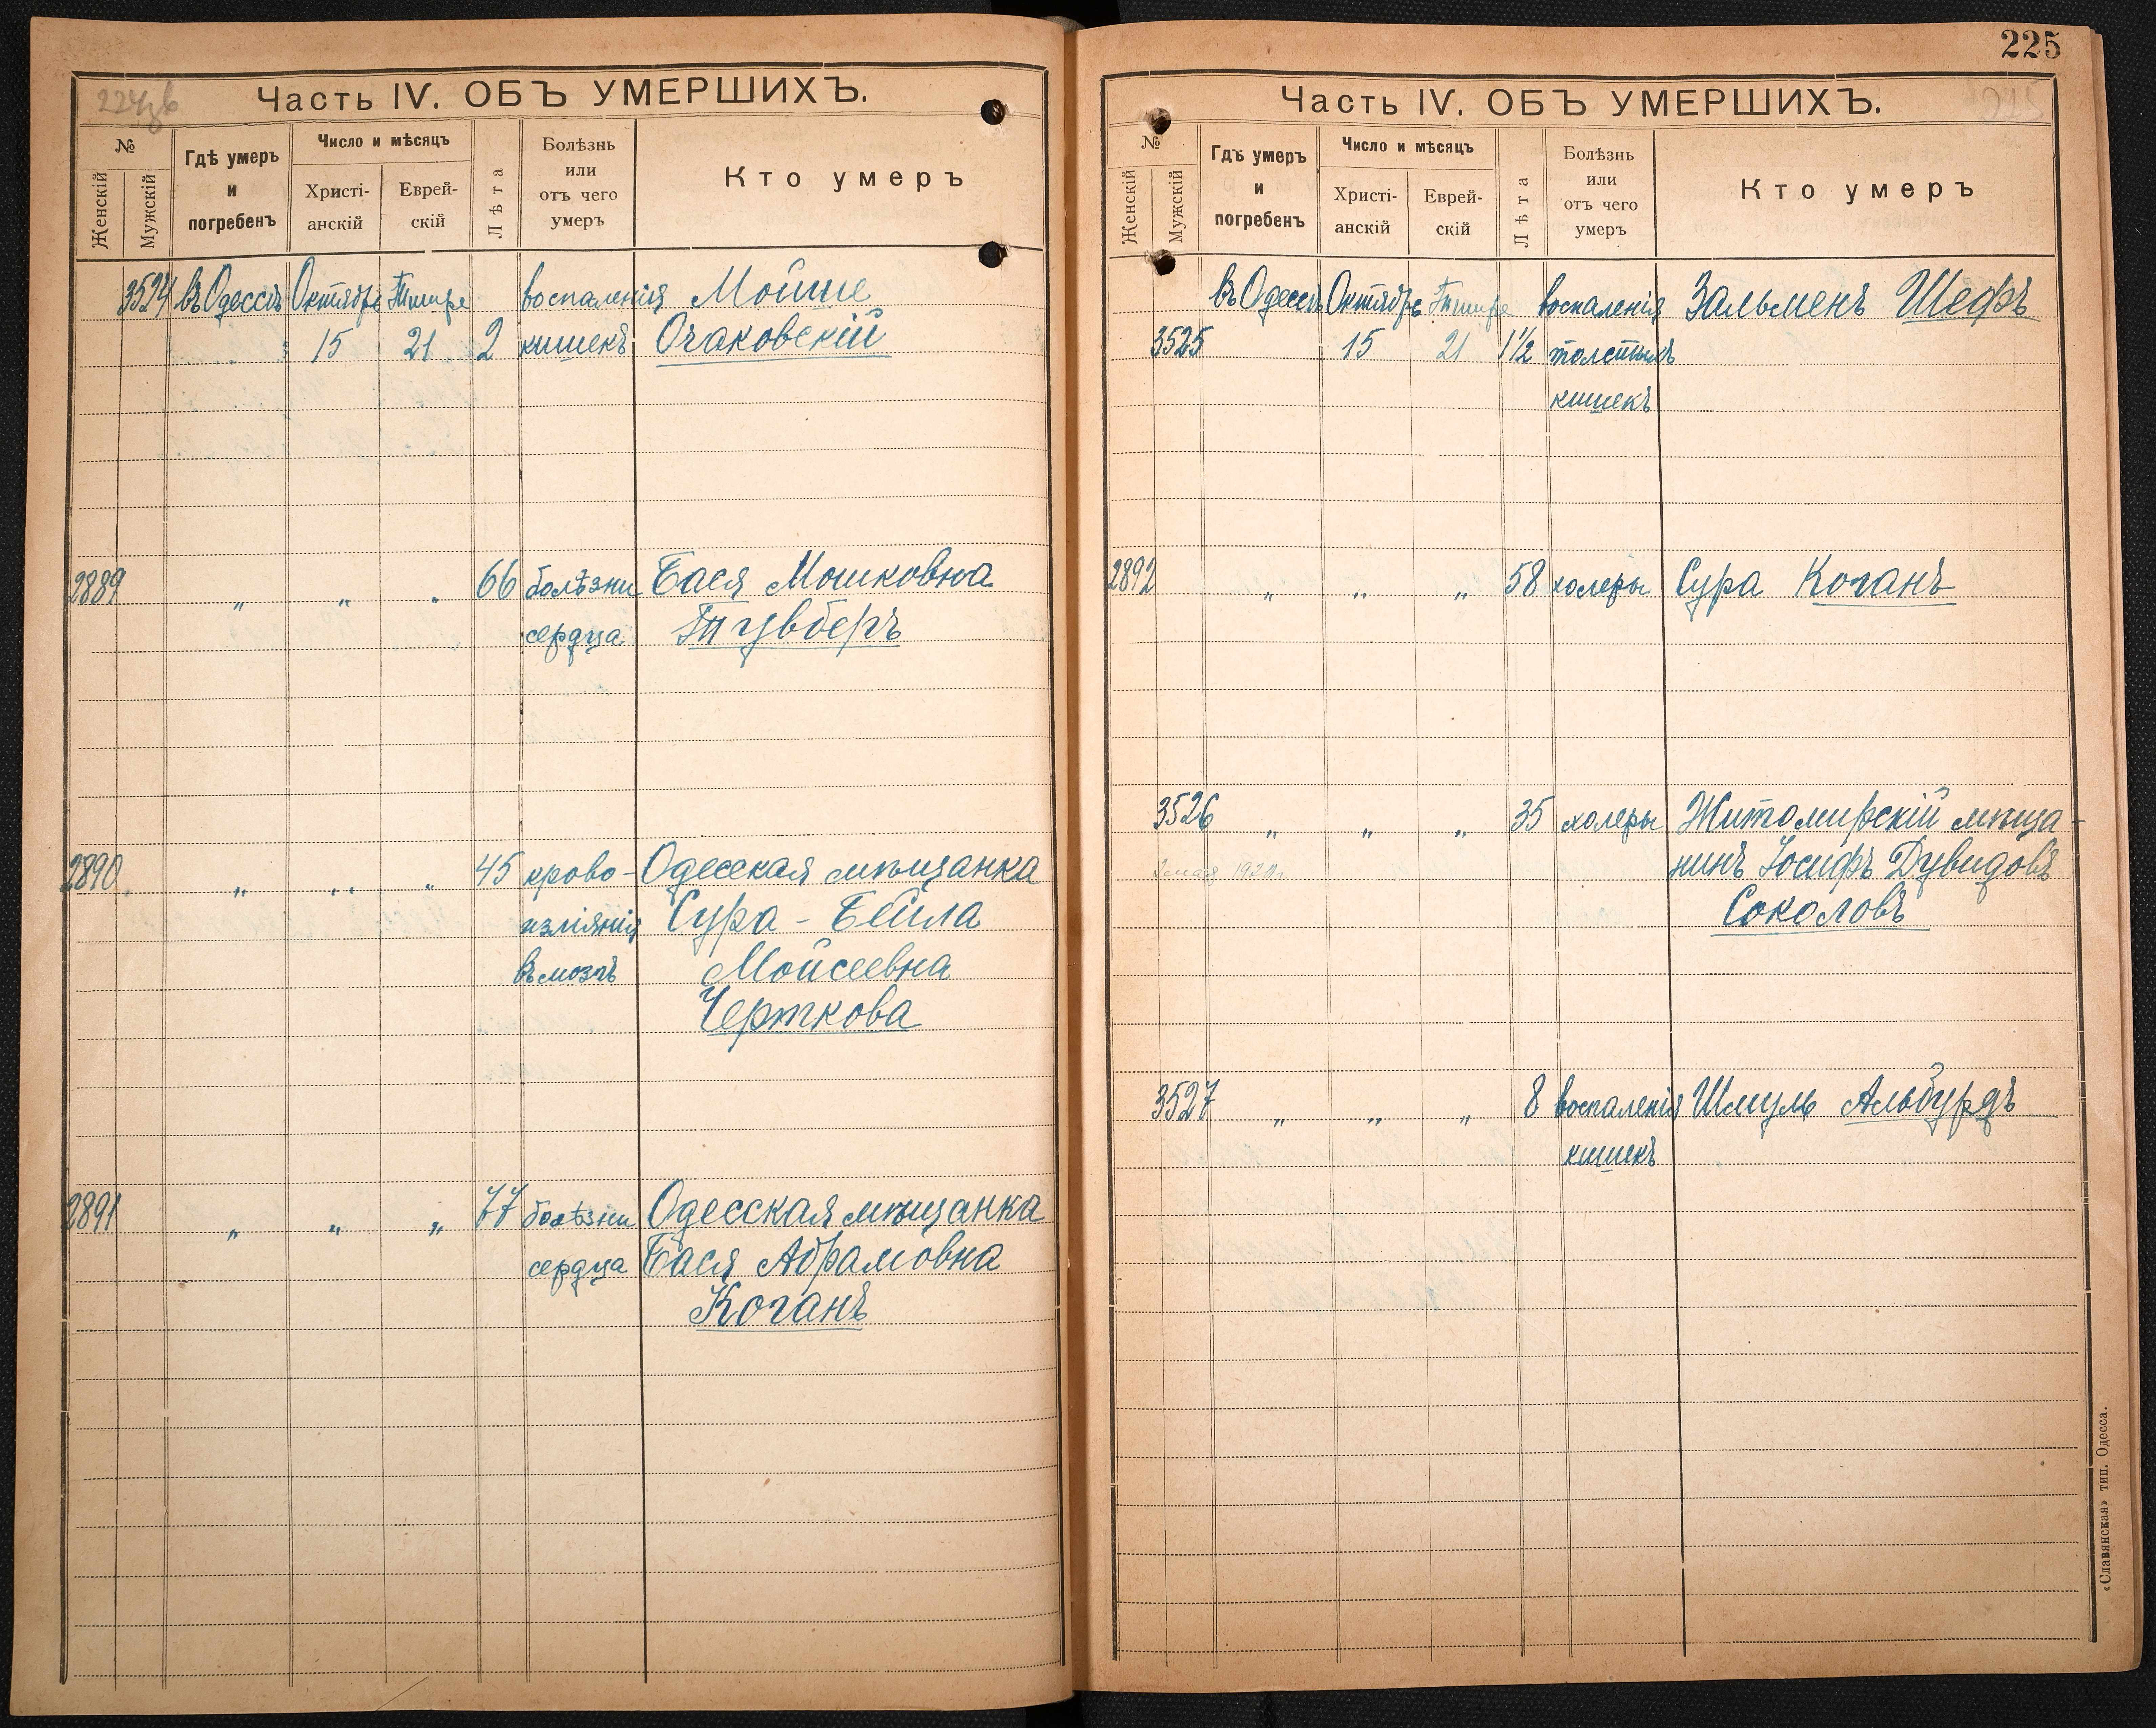 224 зв
Часть IV. ОБЪ УМЕРШИХЪ.
№
Женскій
Мужскій
Гдѣ умеръ
и
погребенъ
Число и мѣсяцъ
Христі-
анскій
Еврей-
скій
Лѣта
Болѣзнь
или
отъ чего
умеръ
Кто умеръ
3524 въ Одессѣ Октября Тишре воспаленія Мойше
15 21 2 кишекъ Очаковскій
2889 „ „ „ 66 болѣзни Бася Мошковна
сердца Тувберъ
2890 „ „ „ 45 крово- Одесская мѣщанка
изліянія Сура - Бейла
въ мозгъ Мойсеевна
Черткова
2891 „ „ „ 77 болѣзни Одесская мѣщанка
сердца Бася Абрамовна
Коганъ
225
Часть IV. ОБЪ УМЕРШИХЪ.
№
Женскій
Мужскій
Гдѣ умеръ
и
погребенъ
Число и мѣсяцъ
Христі-
анскій
Еврей-
скій
Лѣта
Болѣзнь
или
отъ чего
умеръ
Кто умеръ
въ Одессѣ Октября Тишре воспаленія Зальменъ Шефъ
3525 15 21 1½ толстыхъ
кишекъ
2892 „ „ „ 58 холеры Сура Коганъ
3526 „ „ „ 35 холеры Житомирскій мѣща-
нинъ Іосифъ Дувидовъ
Соколовъ
3527 „ „ „ 8 воспаленія Шмуль Альбурдъ
кишекъ
«Славянская» тип. Одесса.